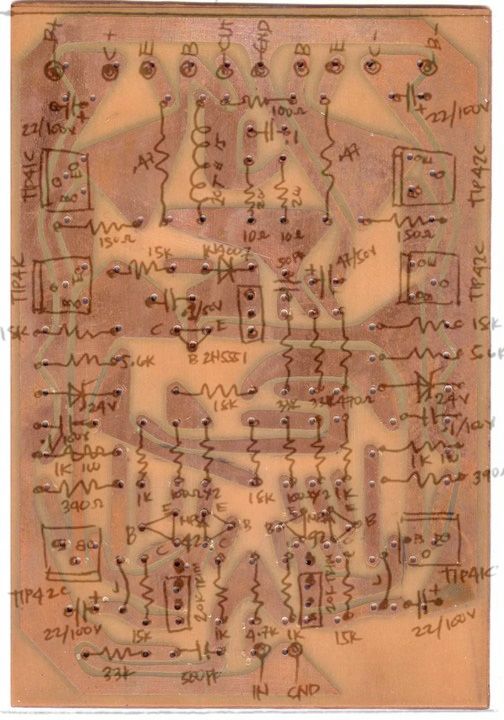 B+ C+ E B OUT GND B E C- B-
22/100V 100Ω .1 22/100V
TIP41C .47 .47 TIP42C
2W 2W
150Ω 10Ω 10Ω 150Ω
15K 47/50V
TIP41C TIP42C
15K C E 15K
5.6K B 2N5551 5.6K
24V 15K 33K 470Ω 24V
1/100V
1K 1W 1K
390Ω 1K 100Ω×2 15K 100Ω×2 1K 390Ω
B E E B B E E B
42 92
C C C
TIP42C 20K TRIM 20K TRIM TIP41C
L L
22/100V 15K 1K 4.7K 1K 15K 22/100V
33K 500PF IN GND